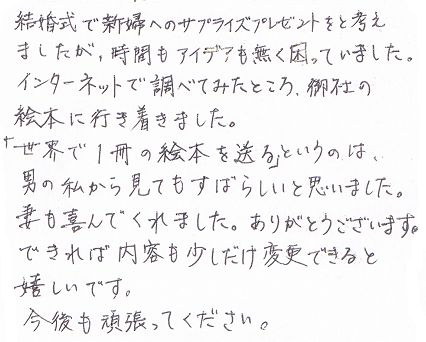 結婚式で新婦へのサプライズプレゼントをと考え
ましたが、時間もアイデアも無く困っていました。
インターネットで調べてみたところ、御社の
絵本に行き着きました。
「世界で1冊の絵本を送る」というのは、
男の私から見てもすばらしいと思いました。
妻も喜んでくれました。ありがとうございます。
できれば内容も少しだけ変更できると
嬉しいです。
今後も頑張ってください。